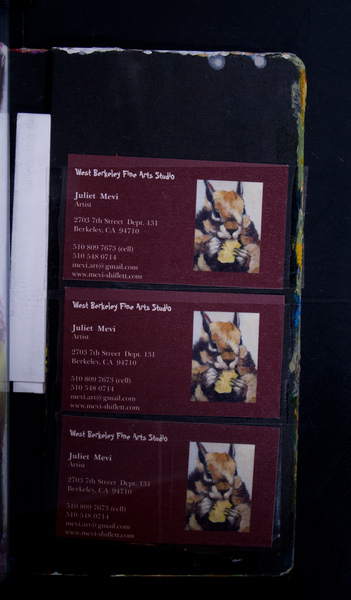 West Berkeley Fine Arts Studio
Juliet Mevi
Artist
2703 7th Street Dept. 131
Berkeley, CA 94710
510 809 7673 (cell)
510 548 0714
mevi.art@gmail.com
www.mevi-shiflett.com
West Berkeley Fine Arts Studio
Juliet Mevi
Artist
2703 7th Street Dept. 131
Berkeley, CA 94710
510 809 7673 (cell)
510 548 0714
mevi.art@gmail.com
www.mevi-shiflett.com
West Berkeley Fine Arts Studio
Juliet Mevi
Artist
2703 7th Street Dept. 131
Berkeley, CA 94710
510 809 7673 (cell)
510 548 0714
mevi.art@gmail.com
www.mevi-shiflett.com